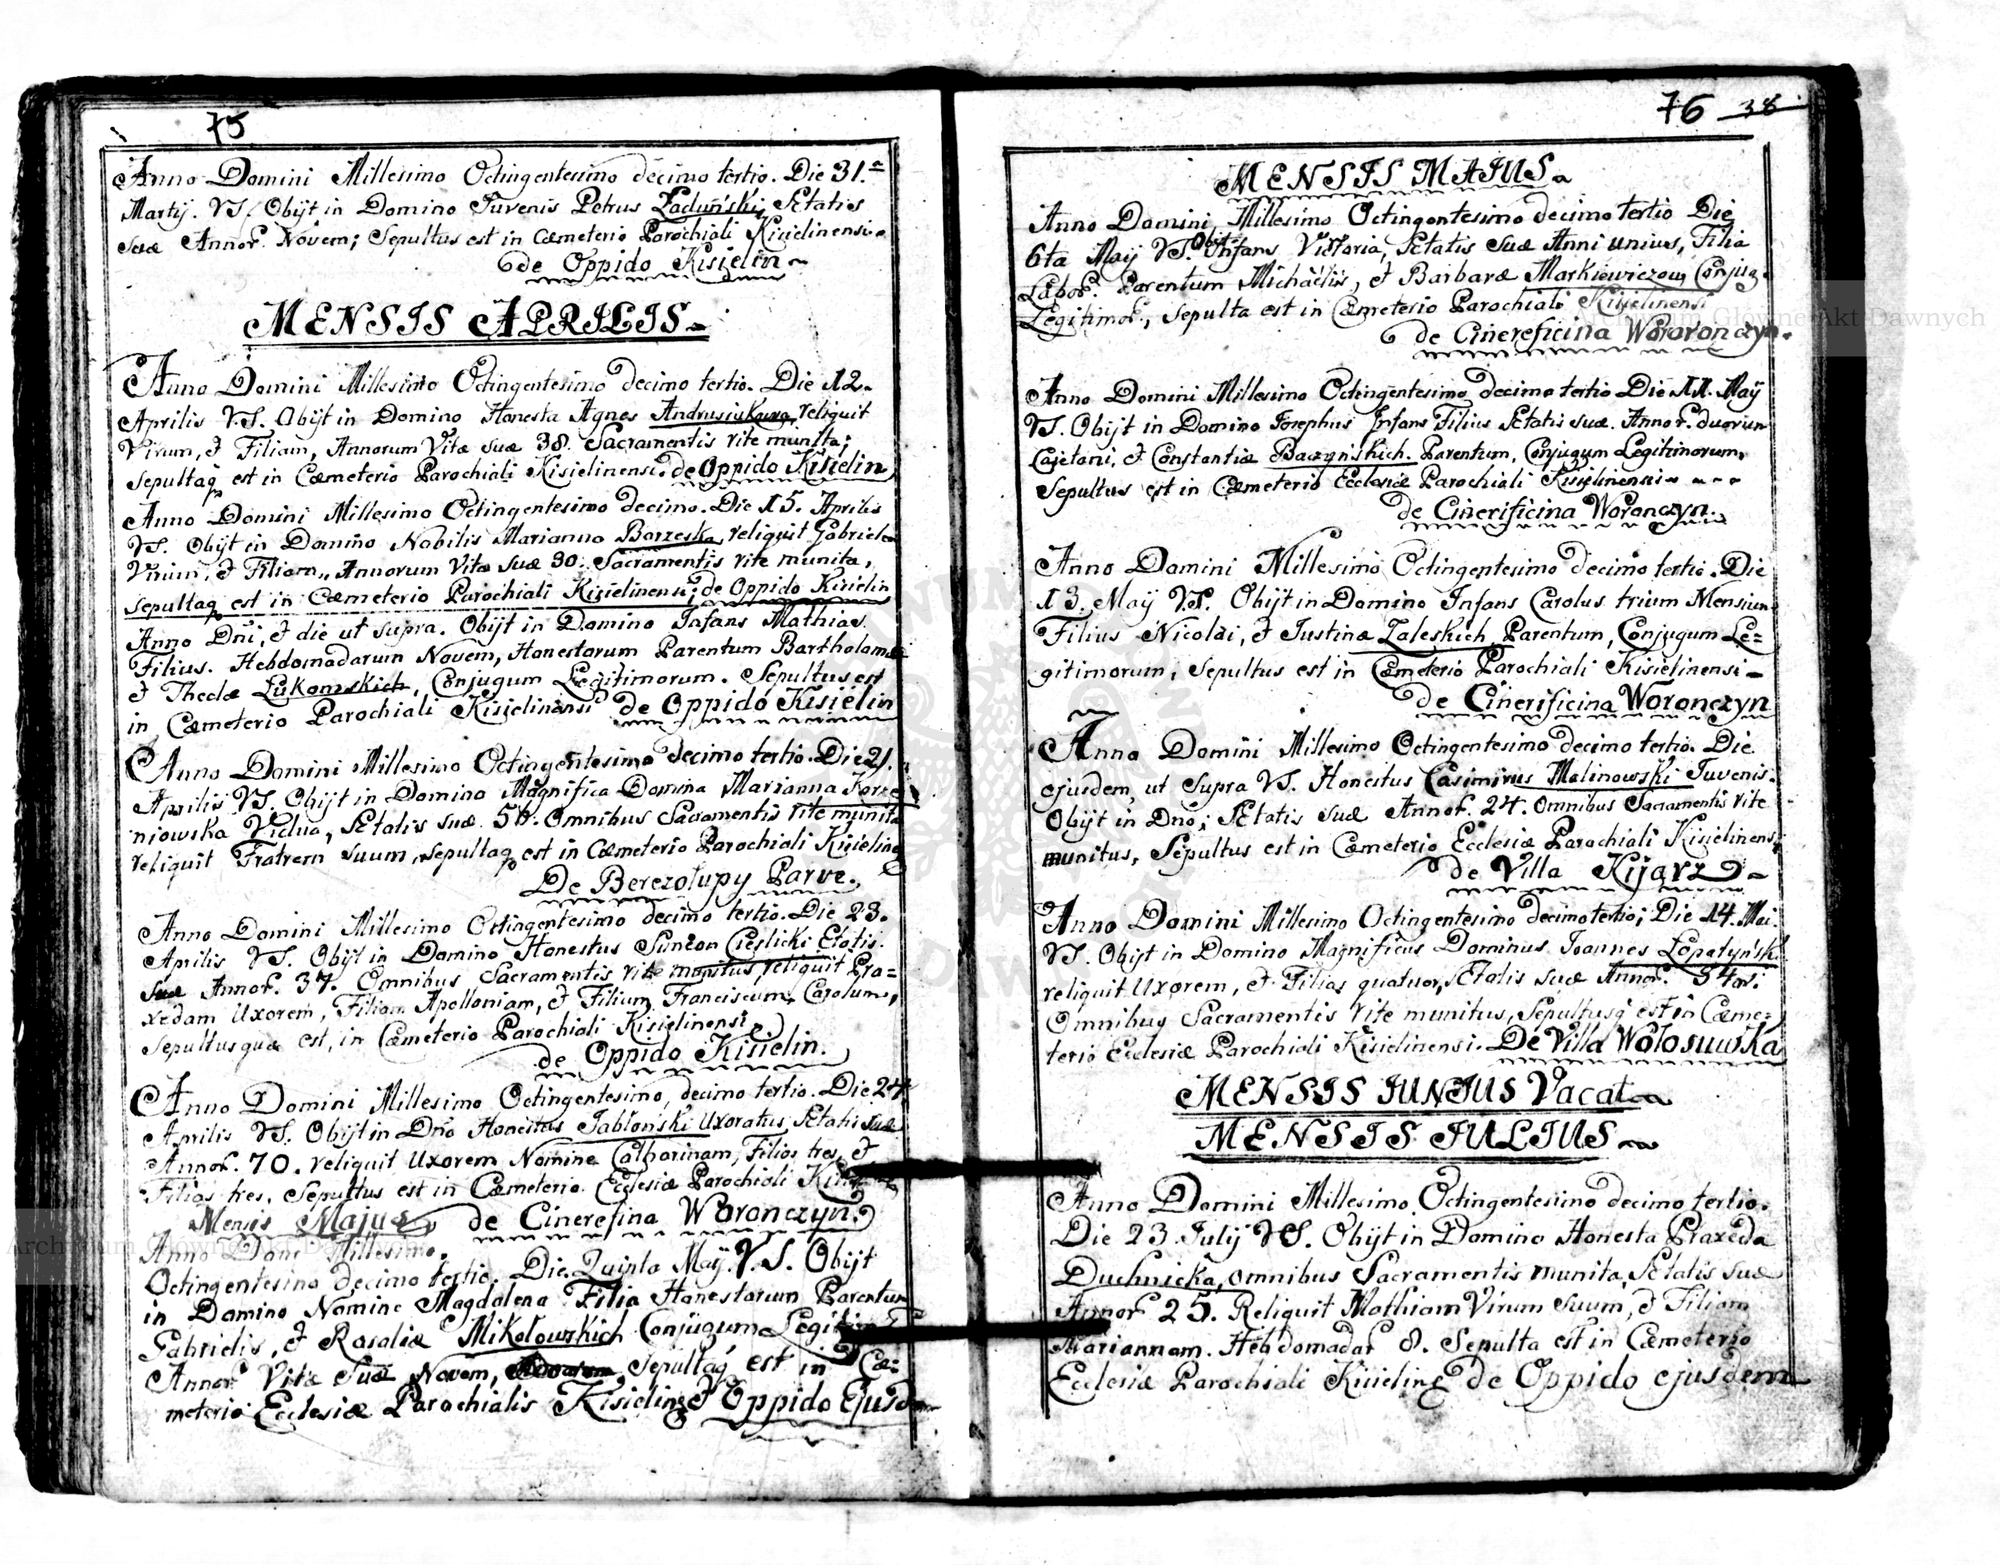 75
Anno Domini Millesimo Octingentesimo decimo tertio. Die 31.a
Martij. VS. Obijt in Domino Juvenis Petrus Laduński, Ætatis
suæ Annor. Novem; Sepultus est in Cæmeterio Parochiali Kisielinensi
de Oppido Kisielin
MENSIS APRILIS
Anno Domini Millesimo Octingentesimo decimo tertio. Die 12.
Aprilis V.S. Obijt in Domino Honesta Agnes Andrusiukowa reliquit
Virum, et Filiam, Annorum Vitæ suæ 38. Sacramentis rite munita;
Sepultaq est in Cæmeterio Parochiali Kisielinensi. de Oppido Kisielin
Anno Domini Millesimo Octingentesimo decimo. Die 15. Aprilis
VS. Obijt in Domino Nobilis Marianna Borzeska reliquit
Virum, et Filiam, Annorum Vitæ suæ 30. Sacramentis rite munita,
sepultaq est in Cæmeterio Parochiali Kisielinensi; de Oppido Kisielin
Anno Dni, et die ut supra. Obijt in Domino Infans Mathias.
Filius. Hebdomadarum Novem, Honestorum Parentum Bartholomæi
et Theclæ Łukomskich, Conjugum Legitimorum. Sepultus est
in Cæmeterio Parochiali Kisielinensi de Oppido Kisielin
Anno Domini Millesimo Octingentesimo decimo tertio. Die 21.
Aprilis VS. Obijt in Domino Magnifica Domina Marianna Korze
niowska Vidua, Ætatis suæ 56. Omnibus Sacramentis rite munita
reliquit Fratrem suum, sepultaq est in Cæmeterio Parochiali
De Berezołupy Parve.
Anno Domini Millesimo Octingentesimo decimo tertio. Die 23.
Aprilis VS. Obijt in Domino Honestus Cieslicki Etatis
suæ Annor. 37. Omnibus Sacramentis rite munitus reliquit Pra=
xedam Uxorem, Filiam Apolloniam, et Filium Franciscum, Carolum,
Sepultusquæ est, in Cæmeterio Parochiali Kisielinensi
de Oppido Kisielin.
Anno Domini Millesimo Octingentesimo, decimo tertio. Die 24
Aprilis VS. Obijt in Dno Honestus Jabłonski Uxoratus, Ætatis suæ
Annor. 70. reliquit Uxorem Nomine Catharinam, Filios tres, et
Filias tres, Sepultus est in Cæmeterio Ecclesiæ Parochiali
Mensis Majus de Cinerefina Woronczyn
Anno Millesimo.
Octingentesimo decimo tertio. Die Quinta Maÿ. V.S. Obijt
in Domino Nomine Magdalena Filia Honestorum Parentum
Gabrielis, et Rosaliæ Mikołowskich Conjugum
Annor. Vitæ suæ Novem, Sepultaq est in Cæ=
meterio Ecclesiæ Parochialis de Oppido
76 38
MENSIS MAIUS
Anno Domini Millesimo Octingentesimo decimo tertio Die
6ta Maÿ VS. Obijt Infans Victoria, Ætatis suæ Anni unius, Filia
Labor. Parentum Michaelis, et Barbaræ Markiewiczow, Conjug.
Legitimor, Sepulta est in Cæmeterio Parochiali Kisielinensi
de Cinereficina Woronczyn.
Anno Domini Millesimo Octingentesimo decimo tertio Die 11. Maÿ
VS. Obijt in Domino Josephus Infans Filius Ætatis suæ. Annor. duorum
Cajetani, et Constantiæ Baczyńskich. Parentum, Conjugum Legitimorum,
Sepultus est in Cæmeterio Ecclesiæ Parochiali Kisielinensi
de Cinerificina Woronczyn.
Anno Domini Millesimo Octingentesimo decimo tertio. Die
13. Maÿ VS. Obijt in Domino Infans Carolus trium Mensium
Filius Nicolai, et Justinæ Zaleskich, Parentum, Conjugum Le=
gitimorum, Sepultus est in Cæmeterio Parochiali Kisielinensi
de Cinerificina Woronczyn
Anno Domini Millesimo Octingentesimo decimo tertio. Die
ejusdem ut Supra VS. Honestus Casimirus Malinowski Juvenis.
Obijt in Dno; Ætatis suæ Annor. 24. Omnibus Sacramentis rite
munitus, Sepultus est in Cæmeterio Ecclesiæ Parochiali Kisielinensi
de Villa Kijarz
Anno Domini Millesimo Octingentesimo decimo tertio; Die 14. Mai.
VS. Obijt in Domino Magnificus Dominus Joannes Łopatyński
reliquit Uxorem, et Filias quatuor, Ætatis suæ Annor. 34
Omnibus Sacramentis rite munitus, Sepultusq est in Cæme=
terio Ecclesiæ Parochiali Kisielinensi. De Villa Wołosuwka
MENSIS IUNIUS Vacat
MENSIS IULIUS
Anno Domini Millesimo Octingentesimo decimo tertio.
Die 23 Julÿ VS. Obijt in Domino Honesta Praxeda
Duchnicka, omnibus Sacramentis munita, Ætatis suæ
Annor. 25. Reliquit Mathiam Virum suum, et Filiam
Mariannam. Hebdomadar 8. Sepulta est in Cæmeterio
Ecclesiæ Parochiali de Oppido ejusdem
Archiwum Główne Akt Dawnych